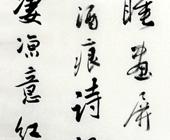 睡畫屏
酒痕詩
凄涼意紅